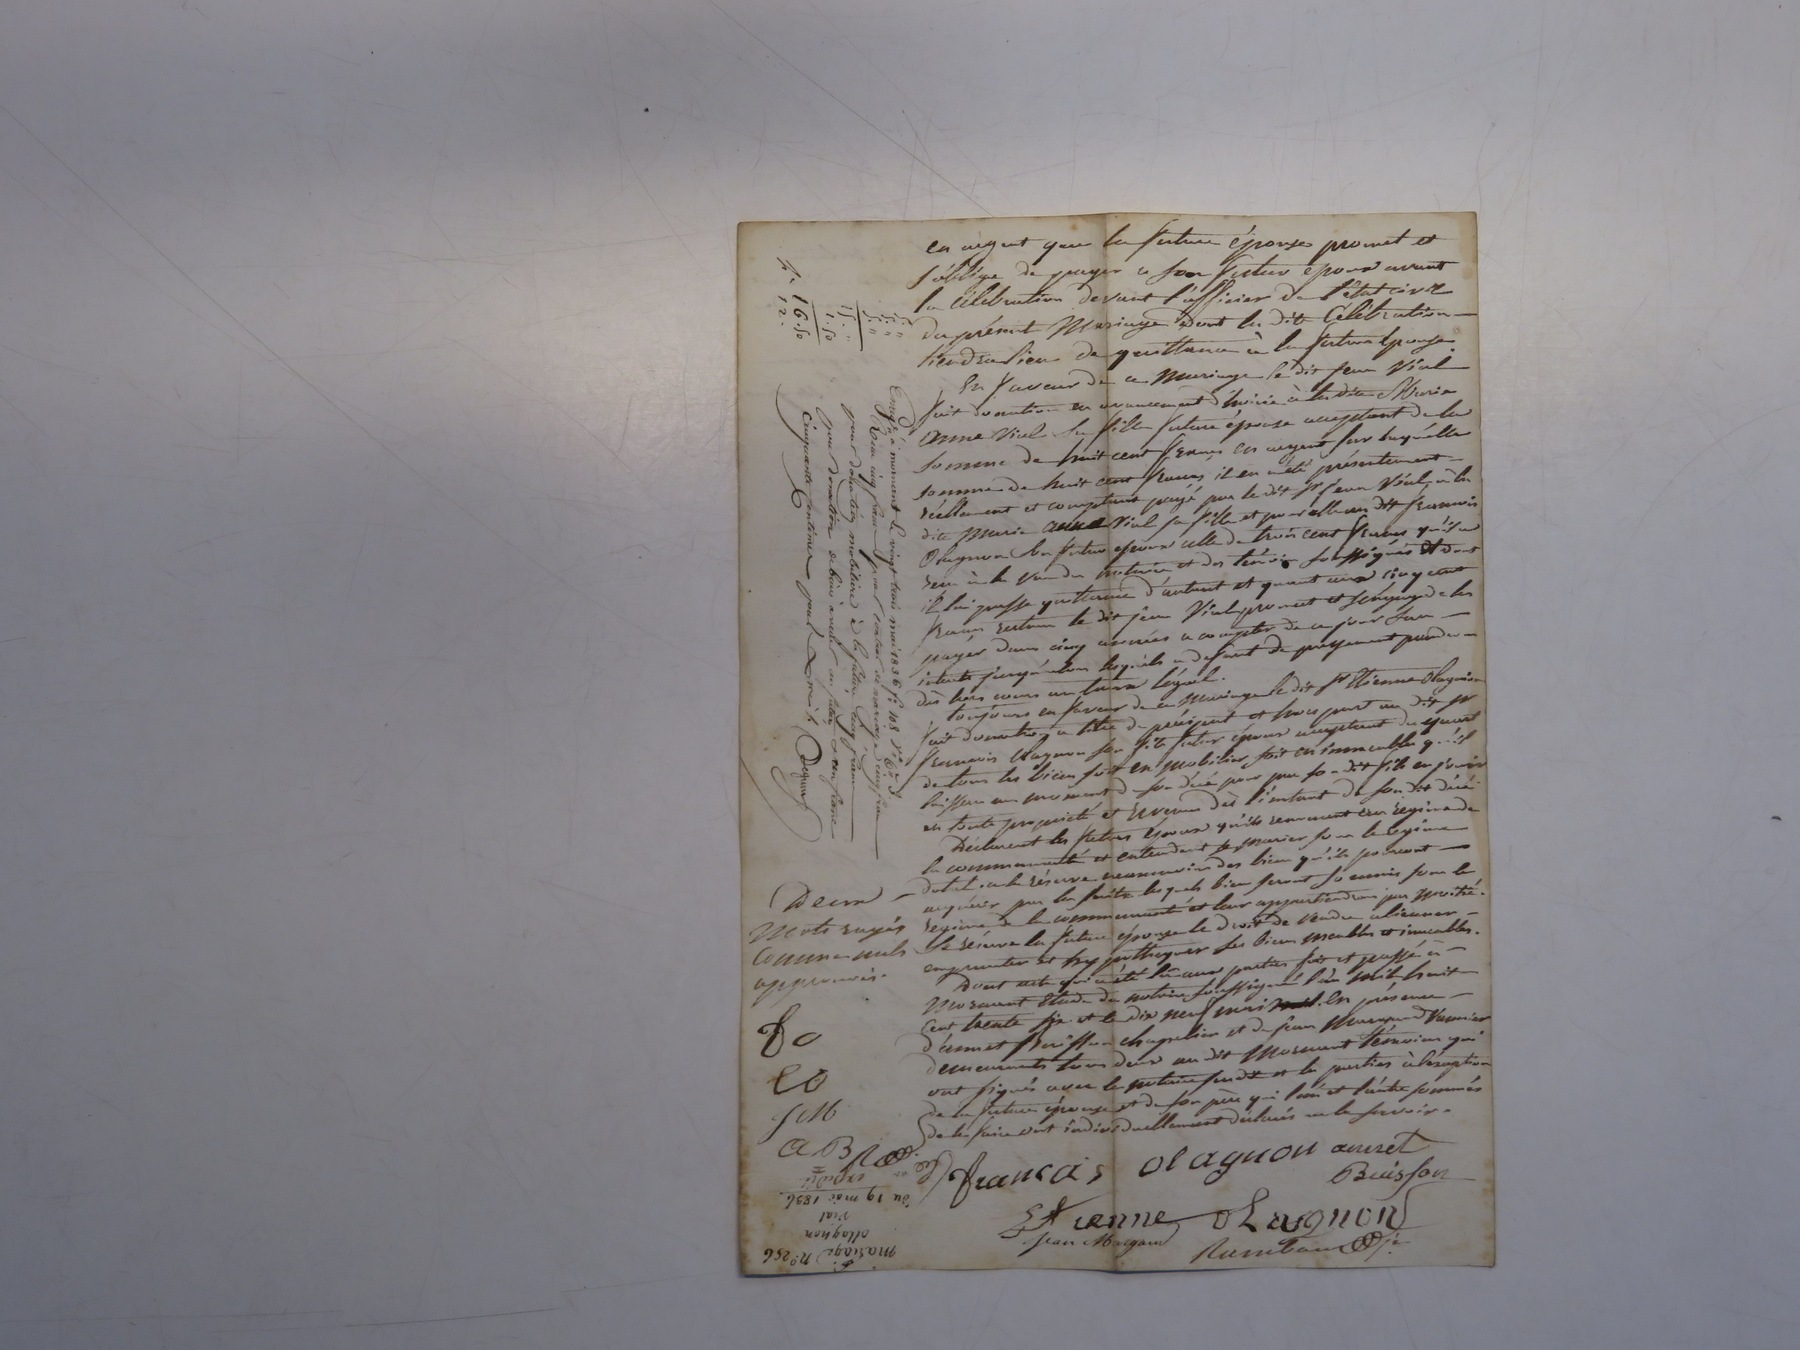 en argent que la future épouse promet et
s'oblige de payer a son futur epoux avant
la Célébration devant l'officier de l'état civil
du présent Mariage dont la dite Célébration
tiendra lieu de quittance à la future épouse.
En faveur de ce Mariage le dit Jean Vial
fait donation en avancement d'hoirie à la dite Marie
anne Vial sa fille future épouse acceptant de la
somme de huit cent francs en argent sur laquelle
somme de huit cent francs, il en a été présentement
réellement et comptant payé par le dit Sr Jean Vial, à la
dite Marie anne Vial sa fille et pour elle au dit françois
Olagnon son futur epoux celle de trois cent francs qu'il a
recu à la vue du notaire et des témoins soussignés et dont
il lui passe quittance d'autant et quant aux cinq cent
francs restans le dit Jean Vial promet et s'engage de les
payer dans cinq années a compter de ce jour sans
interets jusqu'alors lesquels a defaut de payement prendront
dès lors cours au taux légal.
toujours en faveur de ce mariage le dit Sr Etienne Olagnon
fait donation a titre de préciput et hors part au dit Sr
francois Olagnon son fils futur époux acceptant du quart
de tous les biens soit en mobilier, soit en immeubles qu'il
laissera au moment de son décé pour par son dit fils en jouir
en toute propriété et revenu dès l'instant de son dit décé
Déclarent les futurs époux qu'ils renoncent au regime de
la communauté et entendent se marier sous le regime
dotal. a la réserve neanmoins des biens qu'ils pourront
acquérir par la suite lesquels biens seront soumis sous le
regime de la communauté et leur appartiendront par moitié.
Se réserve la future épouse le droit de vendre aliener
emprunter et hyppothequer ses biens meubles et immeubles.
Dont acte qui a été lu aux parties fait et passé à
Mornant Etude du notaire soussigné l'an mil huit
cent trente six et le dix neuf mai en présence
d'annet Buisson chapelier et de Jean Margand
demeurants tous deux au dit Mornant témoins qui
ont signés avec le notaire susdit et les parties à l'exception
de la future épouse et de son père qui l'un et l'autre sommés
de le faire ont individuellement déclarés ne le savoir.
francais olagnon annet
Buisson
Etienne olagnon
Jean Margand
Deux
Mots rayés
comme nuls
approuvés.
fo
EO
JM
AB
16.50
1.50
Enrgé à mornant le vingt trois mai 1836 fo 168
Recu cinq francs pour contrat de mariage, cinq francs
pour donation mobilière à la future, cinq francs
pour donation de biens à venir au futur et un franc
cinquante centimes pour
mariage No. 256
ollagnon
Vial
du 19 mai 1836
expedié